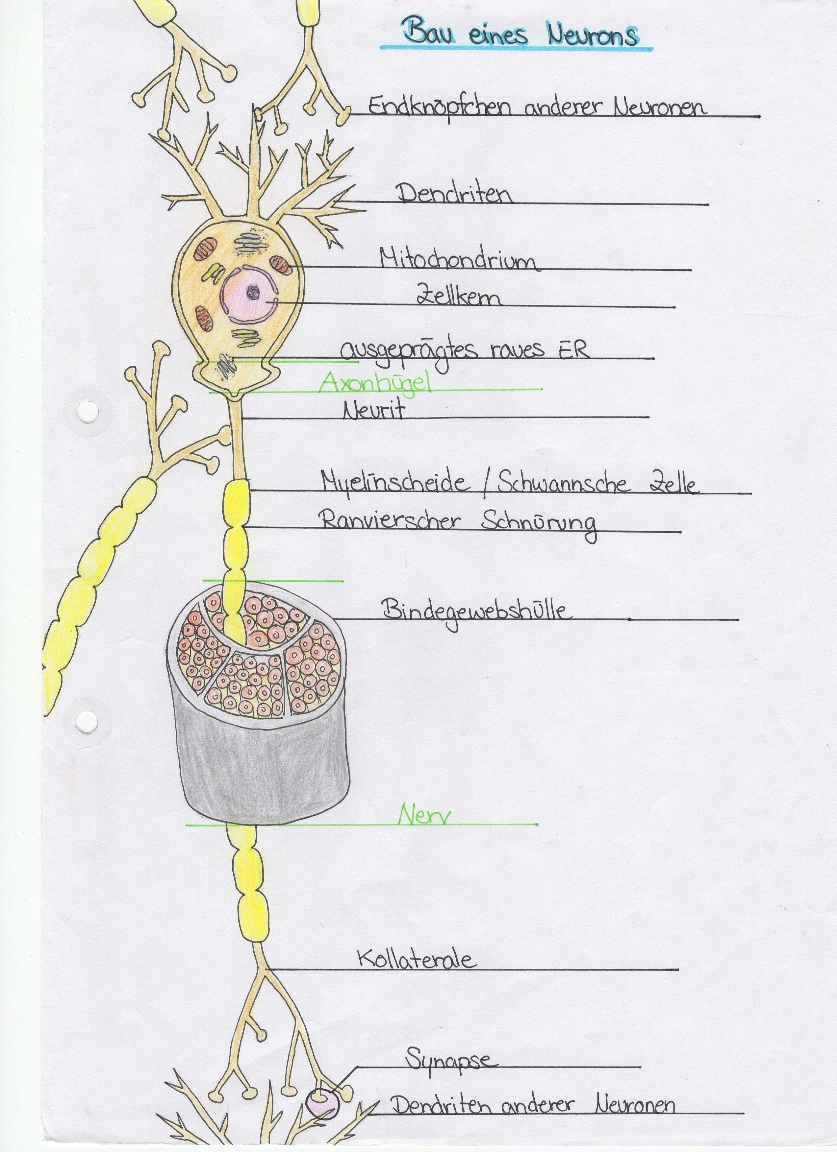 Bau eines Neurons
Endknöpfchen anderer Neuronen
Dendriten
Mitochondrium
Zellkern
ausgeprägtes raues ER
Axonhügel
Neurit
Myelinscheide / Schwannsche Zelle
Ranvierscher Schnürung
Bindegewebshülle
Nerv
Kollaterale
Synapse
Dendriten anderer Neuronen